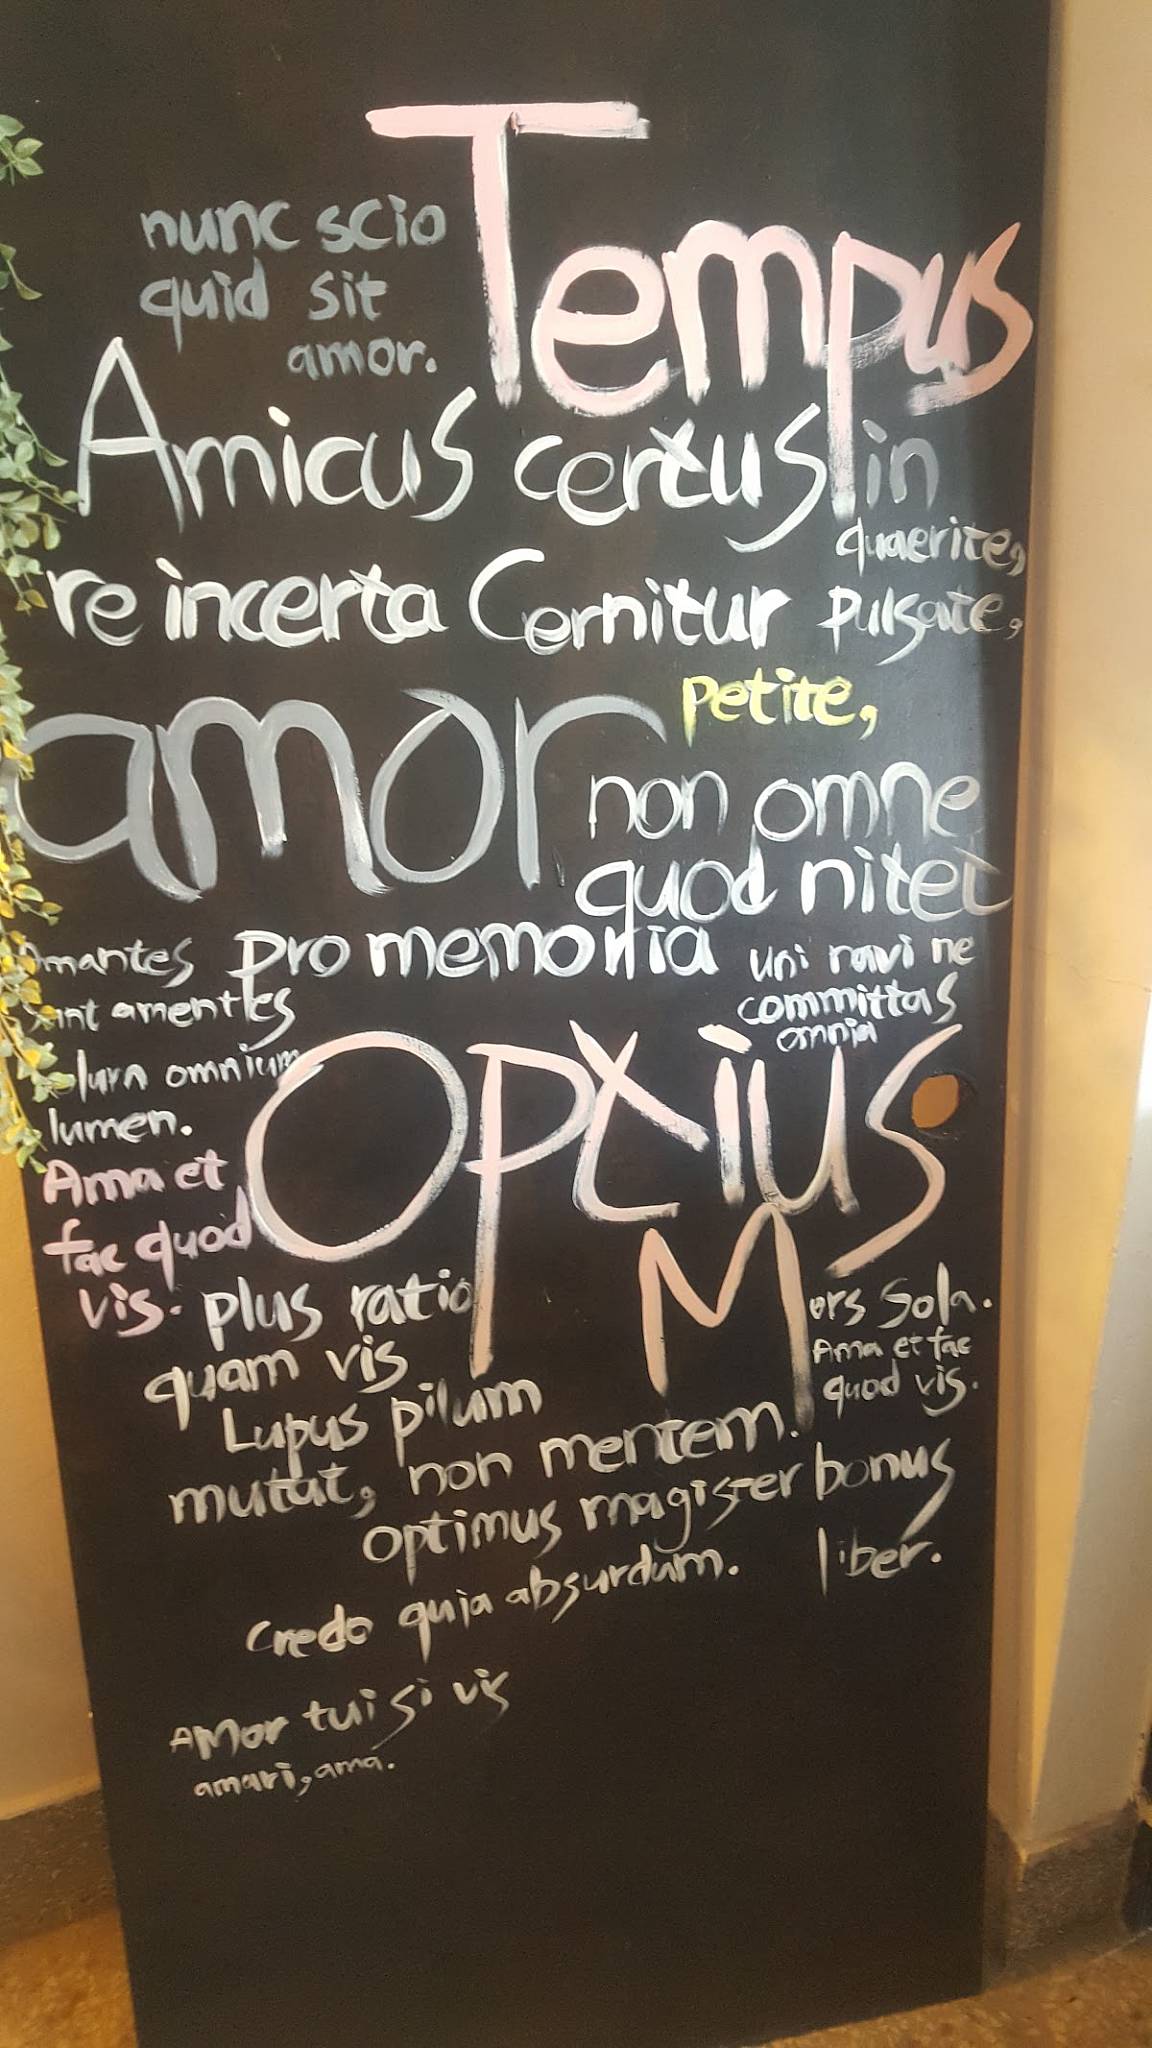 Tempus
nunc scio
quid sit
amor.
Amicus certus in
re incerta Cernitur
quaerite,
pulsate,
petite,
amor
non omne
quod nitet
pro memoria
uni navi ne
committas
omnia
amantes
sunt amentes
omnium
lumen.
Optius
Ama et
fac quod
vis.
plus ratio
quam vis
Mors Sola.
Ama et fac
quod vis.
Lupus pilum
mutat, non mentem.
optimus magister bonus
liber.
credo quia absurdum.
Amor tui si vis
amari, ama.